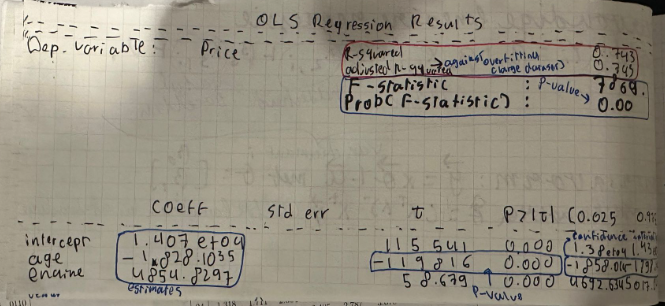 OLS Regression Results
Dep. variable: Price
R-squared 0.743
adjusted R-squared → against overfitting (large dataset) 0.743
F-statistic : 7869.
P-value
Prob(F-statistic) : 0.00
coeff std err t P>|t| [0.025
confidence
intercept 1.407e+04 115.541 0.000 1.38e+04
age -1828.1035 -119.816 0.000 -1858.014
engine 4854.8297 58.679 0.000 4692.645
estimates P-value